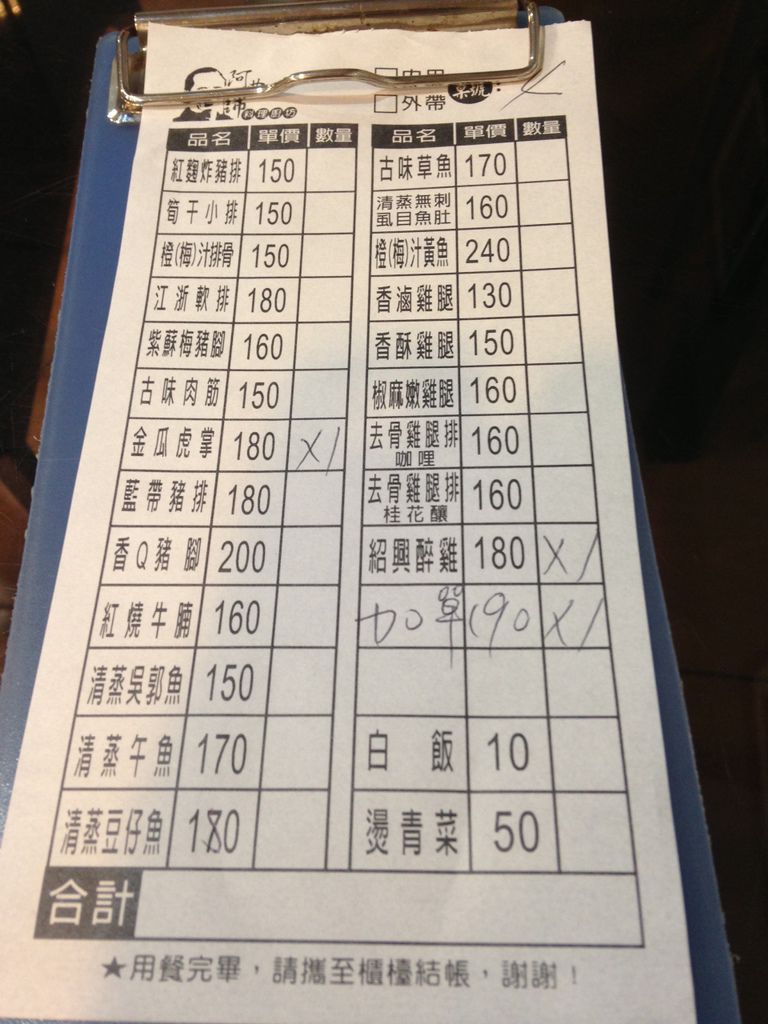 阿
師
料理廚坊
□
□外帶
桌號：
品名 單價 數量
紅麴炸豬排 150
筍干小排 150
橙(梅)汁排骨 150
江浙軟排 180
紫蘇梅豬腳 160
古味肉筋 150
金瓜虎掌 180 X1
藍帶豬排 180
香Q豬腳 200
紅燒牛腩 160
清蒸吳郭魚 150
清蒸午魚 170
清蒸豆仔魚 180
品名 單價 數量
古味草魚 170
清蒸無刺
虱目魚肚 160
橙(梅)汁黃魚 240
香滷雞腿 130
香酥雞腿 150
椒麻嫩雞腿 160
去骨雞腿排
咖哩 160
去骨雞腿排
桂花釀 160
紹興醉雞 180 X1
加單 190 X1
白飯 10
燙青菜 50
合計
★用餐完畢，請攜至櫃檯結帳，謝謝！